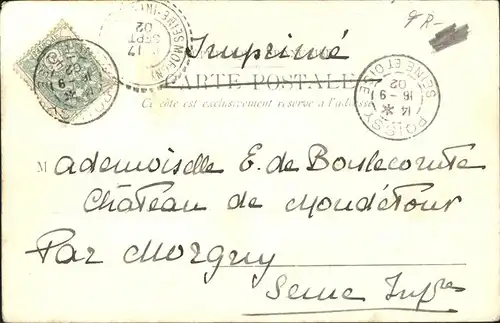 9R-
Imprimé
CARTE POSTALE
Ce côté est exclusivement réservé à l'adresse
MORGNY (SEINE-INF
17
SEPT
02
POISSY
SEINE ET OISE
14 *
16 - 9
02
Mademoiselle E. de Boulecomte
Château de Mondétour
Par Morgny
Seine Infre